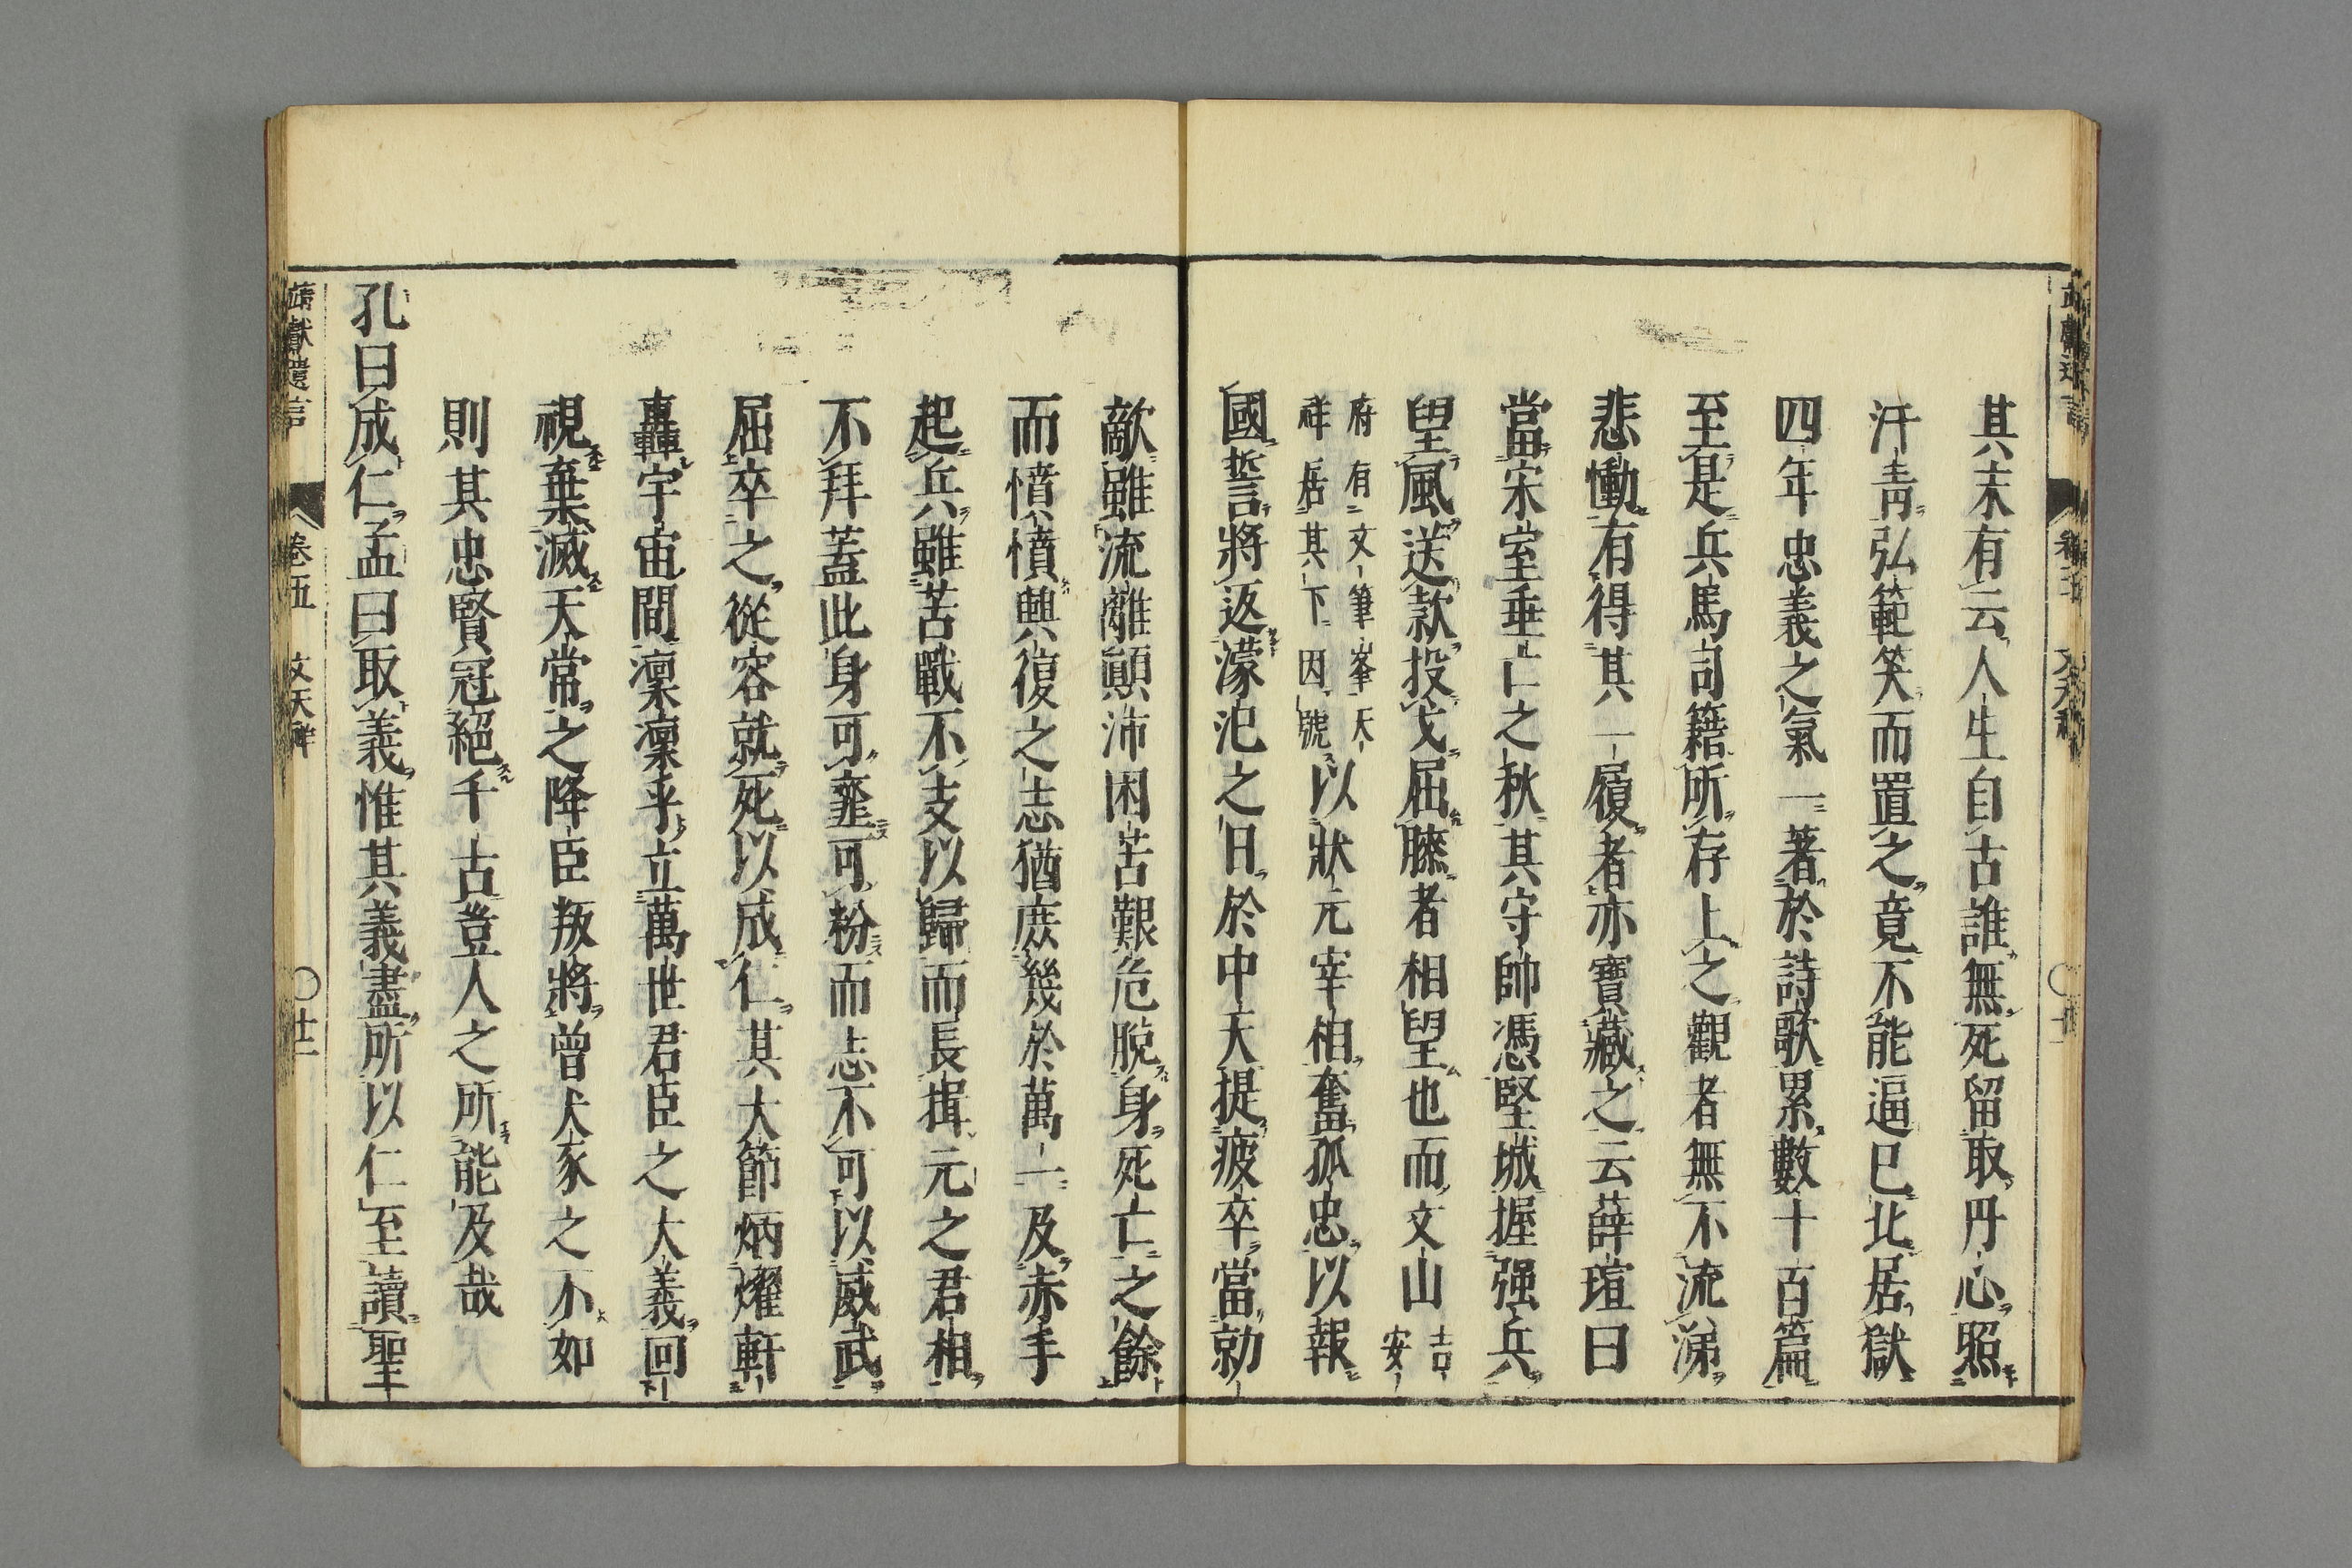 其末有云人生自古誰無死留取丹心照
汗青弘範笑而置之竟不能逼已北居獄
四年忠義之氣一著於詩歌累數十百篇
至是兵馬司籍所存上之觀者無不流涕
悲慟有得其一履者亦寶藏之云薛瑄曰
當宋室垂亡之秋其守帥憑堅城握强兵
望風送款投戈屈膝者相望也而文山吉安
府有文筆峯天祥居其下因號以狀元宰相奮孤忠以報
國誓將返濛汜之日於中天提疲卒當勍
敵雖流離顛沛困苦艱危脫身死亡之餘
而憤憤興復之志猶庶幾於萬一及赤手
起兵雖苦戰不支以歸而長揖元之君相
不拜蓋此身可虀可粉而志不可以威武
屈卒之從容就死以成仁其大節炳燿軒
轟宇宙間凛凛乎立萬世君臣之大義回
視棄滅天常之降臣叛將曾犬豕之不如
則其忠賢冠絕千古豈人之所能及哉
孔曰成仁孟曰取義惟其義盡所以仁至讀聖
靖獻遺言 卷五 文天祥 〇廿二